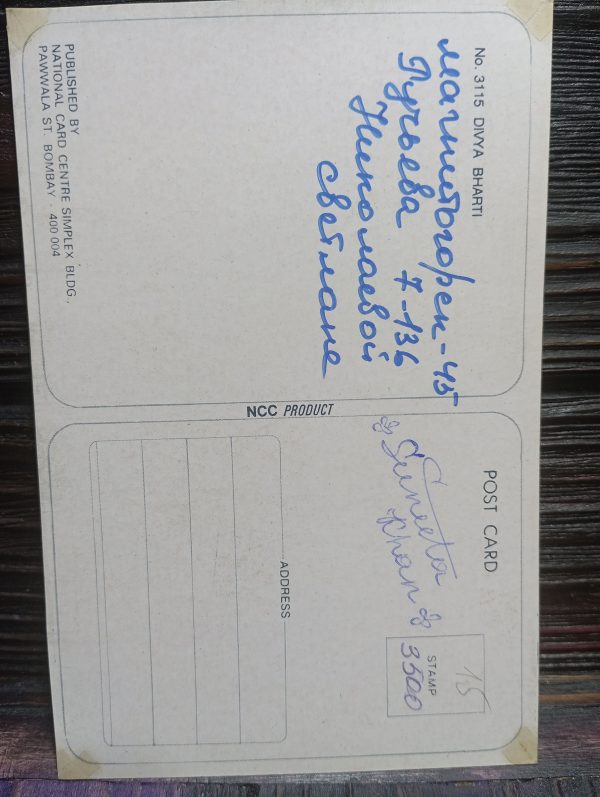 No. 3115 DIVYA BHARTI
Магнитогорск-45
Ручьева 7-136
Николаевой
Светлане
PUBLISHED BY
NATIONAL CARD CENTRE SIMPLEX BLDG,
PAWWALA ST. BOMBAY - 400 004
NCC PRODUCT
POST CARD
Suneeta
Khan
15
STAMP
3500
ADDRESS